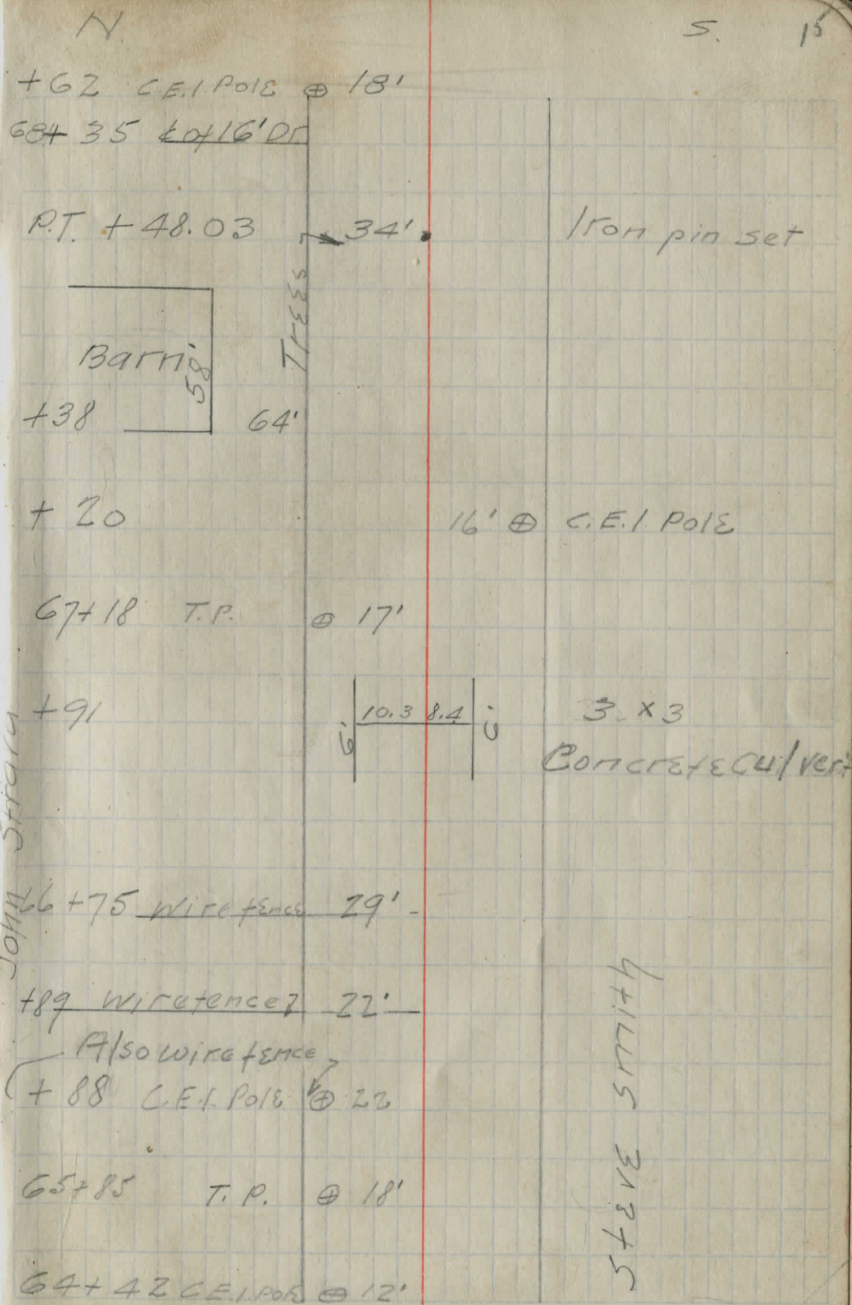 N. S. 15
+62 C.E.I Pole ⊕ 18'
68+35 Lot 16' Dr
P.T. +48.03 34' Iron pin set
Trees
Barn 58'
+38 64'
+20 16' ⊕ C.E.I Pole
67+18 T.P. ⊕ 17'
+91 6' 10.3 8.4 3 x 3
Concrete Culvert
John
66+75 Wire fence 29'
+89 Wire fence 22'
Also wire fence
+88 C.E.I. Pole ⊕ 22
65+85 T.P. ⊕ 18'
Steve Smith
64+42 C.E.I Pole ⊕ 12'